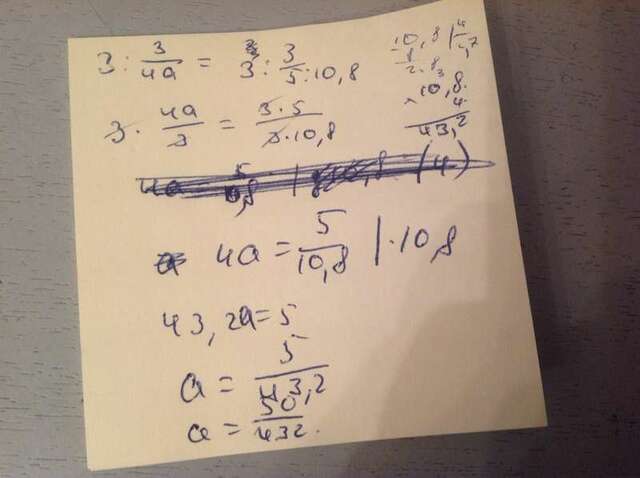 3 : 3/4a = 3 : 3/5 : 10,8
3 · 4a/3 = 3·5/3·10,8
4a = 5/10,8 | · 10,8
43,2a = 5
a = 5/43,2
a = 50/432.
10,8 | 4
8
2,7
2.8
× 10,8
4
43,2